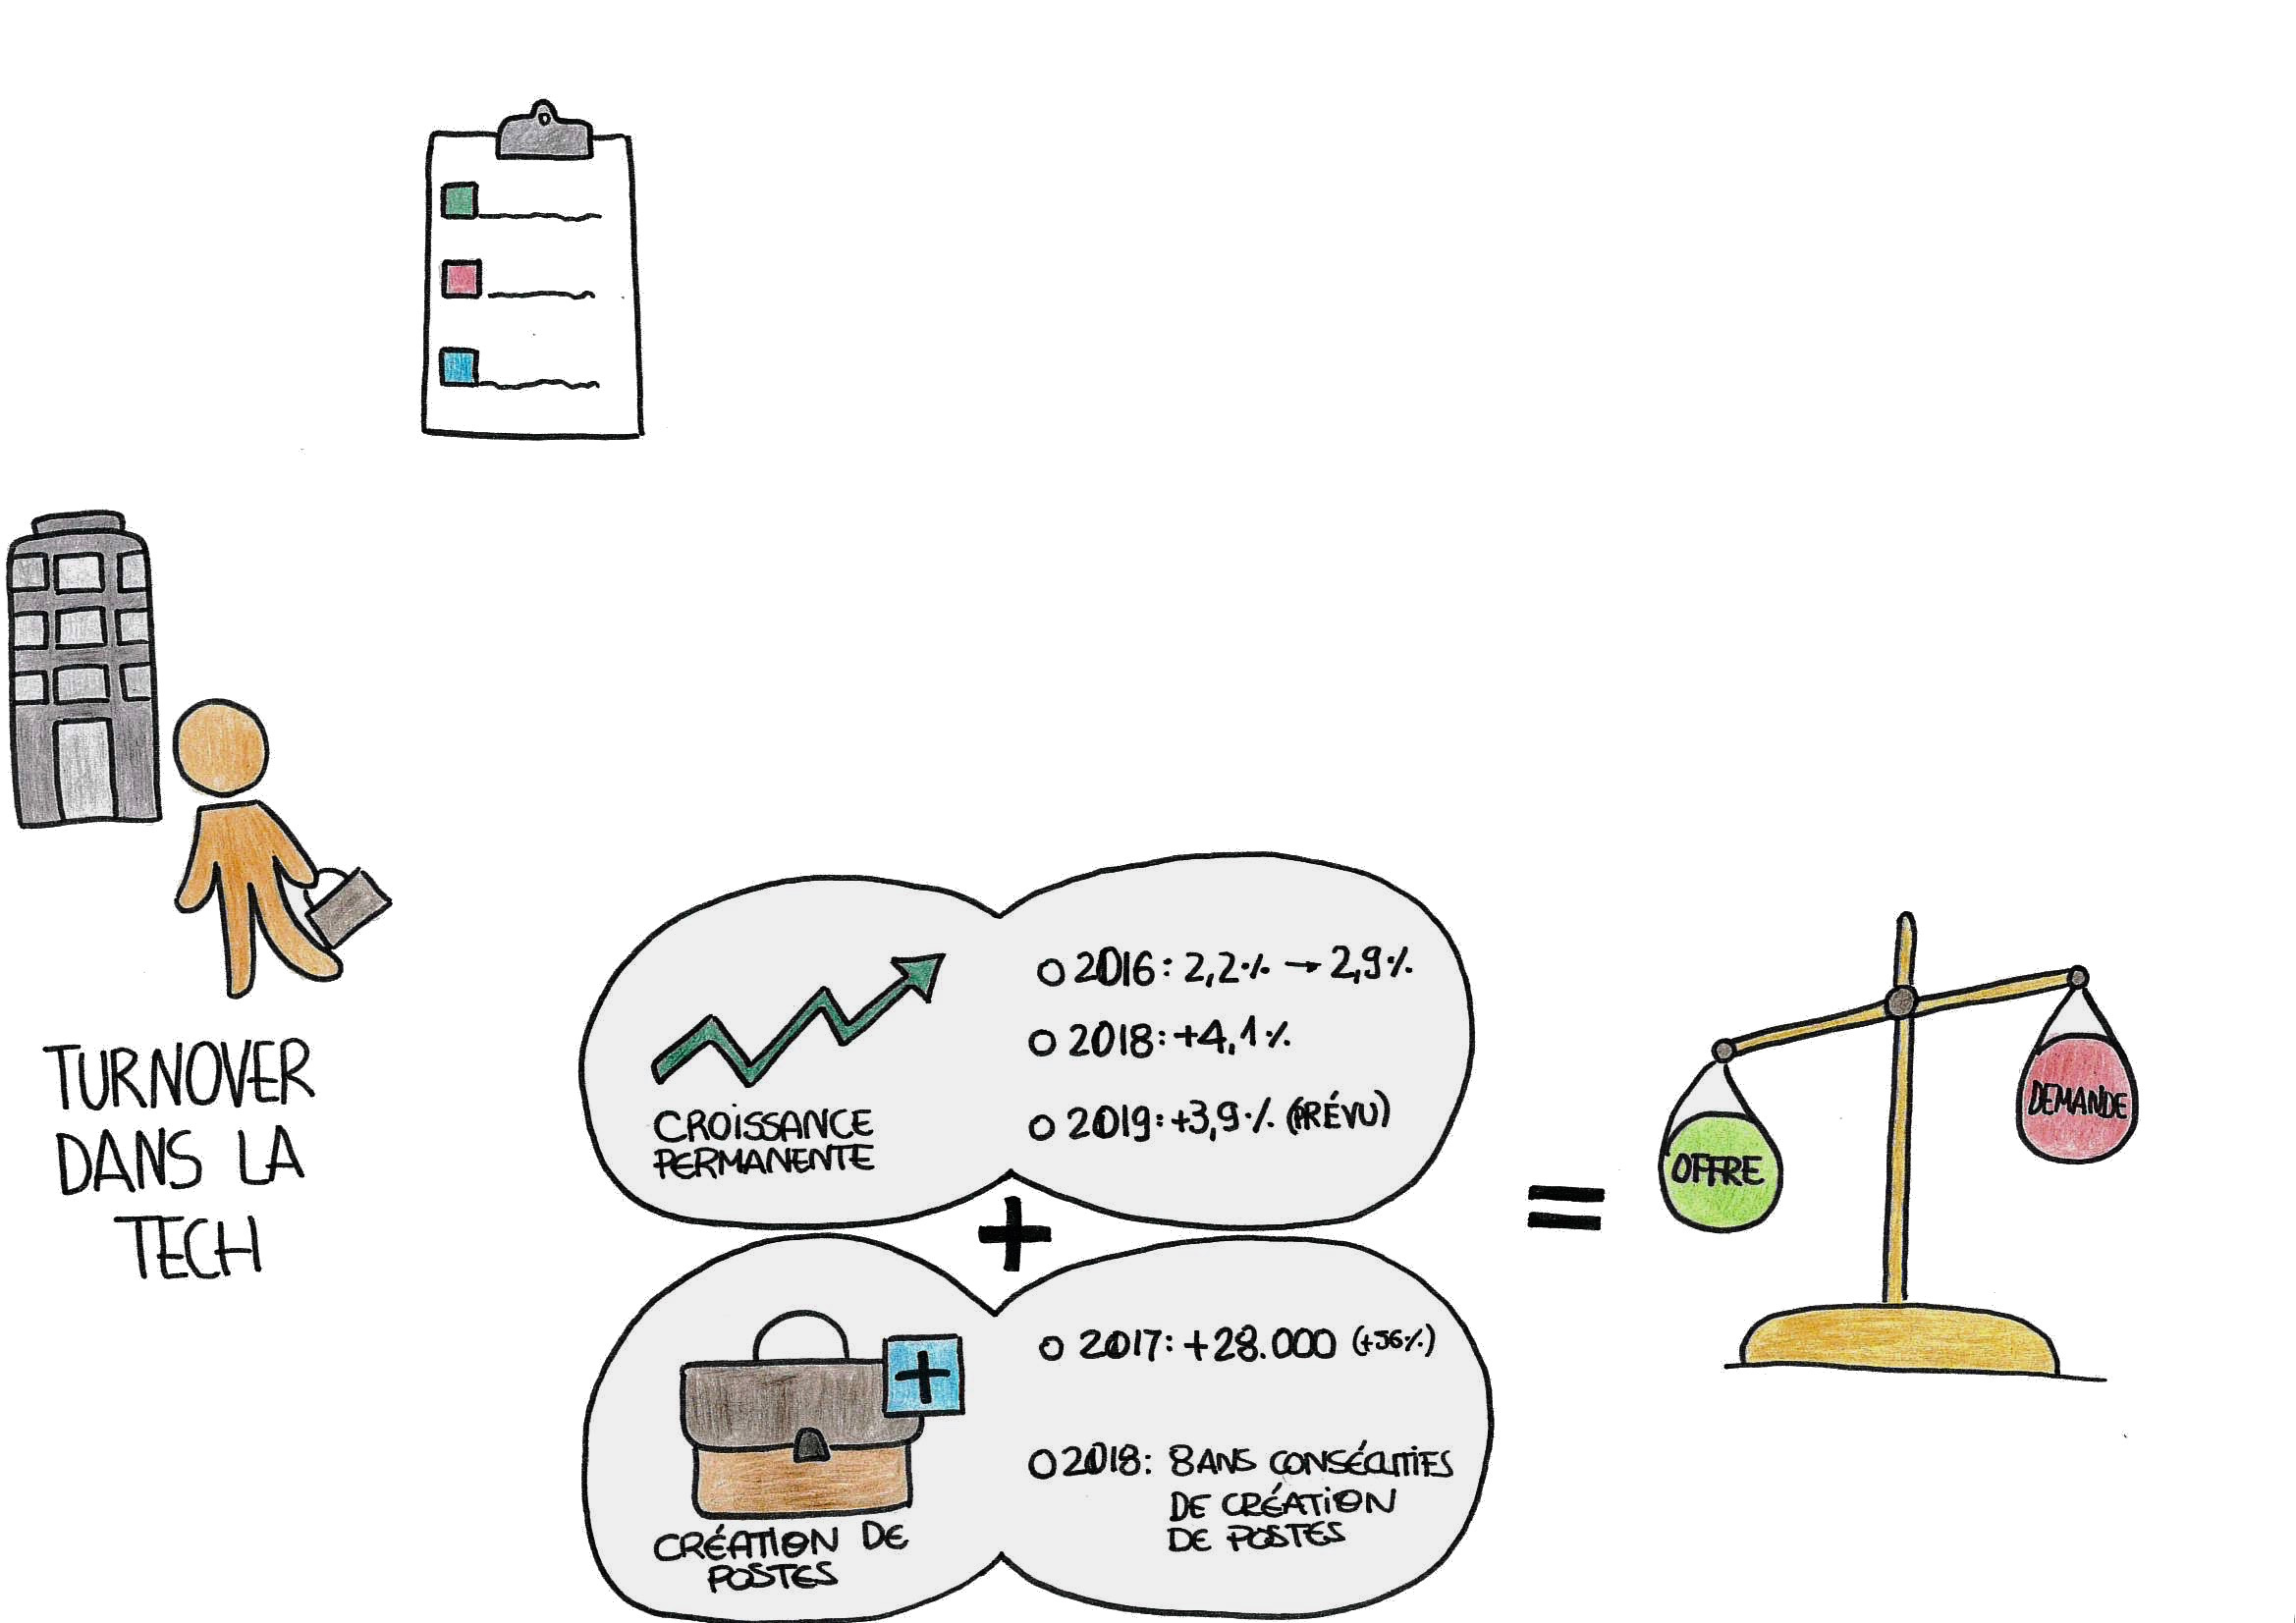 TURNOVER
DANS LA
TECH
CROISSANCE
PERMANENTE
2016: 2,2% → 2,9%
2018: +4,1%
2019: +3,9% (PRÉVU)
+
CRÉATION DE
POSTES
2017: +28.000 (+56%)
2018: 8 ANS CONSÉCUTIFS
DE CRÉATION
DE POSTES
=
OFFRE
DEMANDE